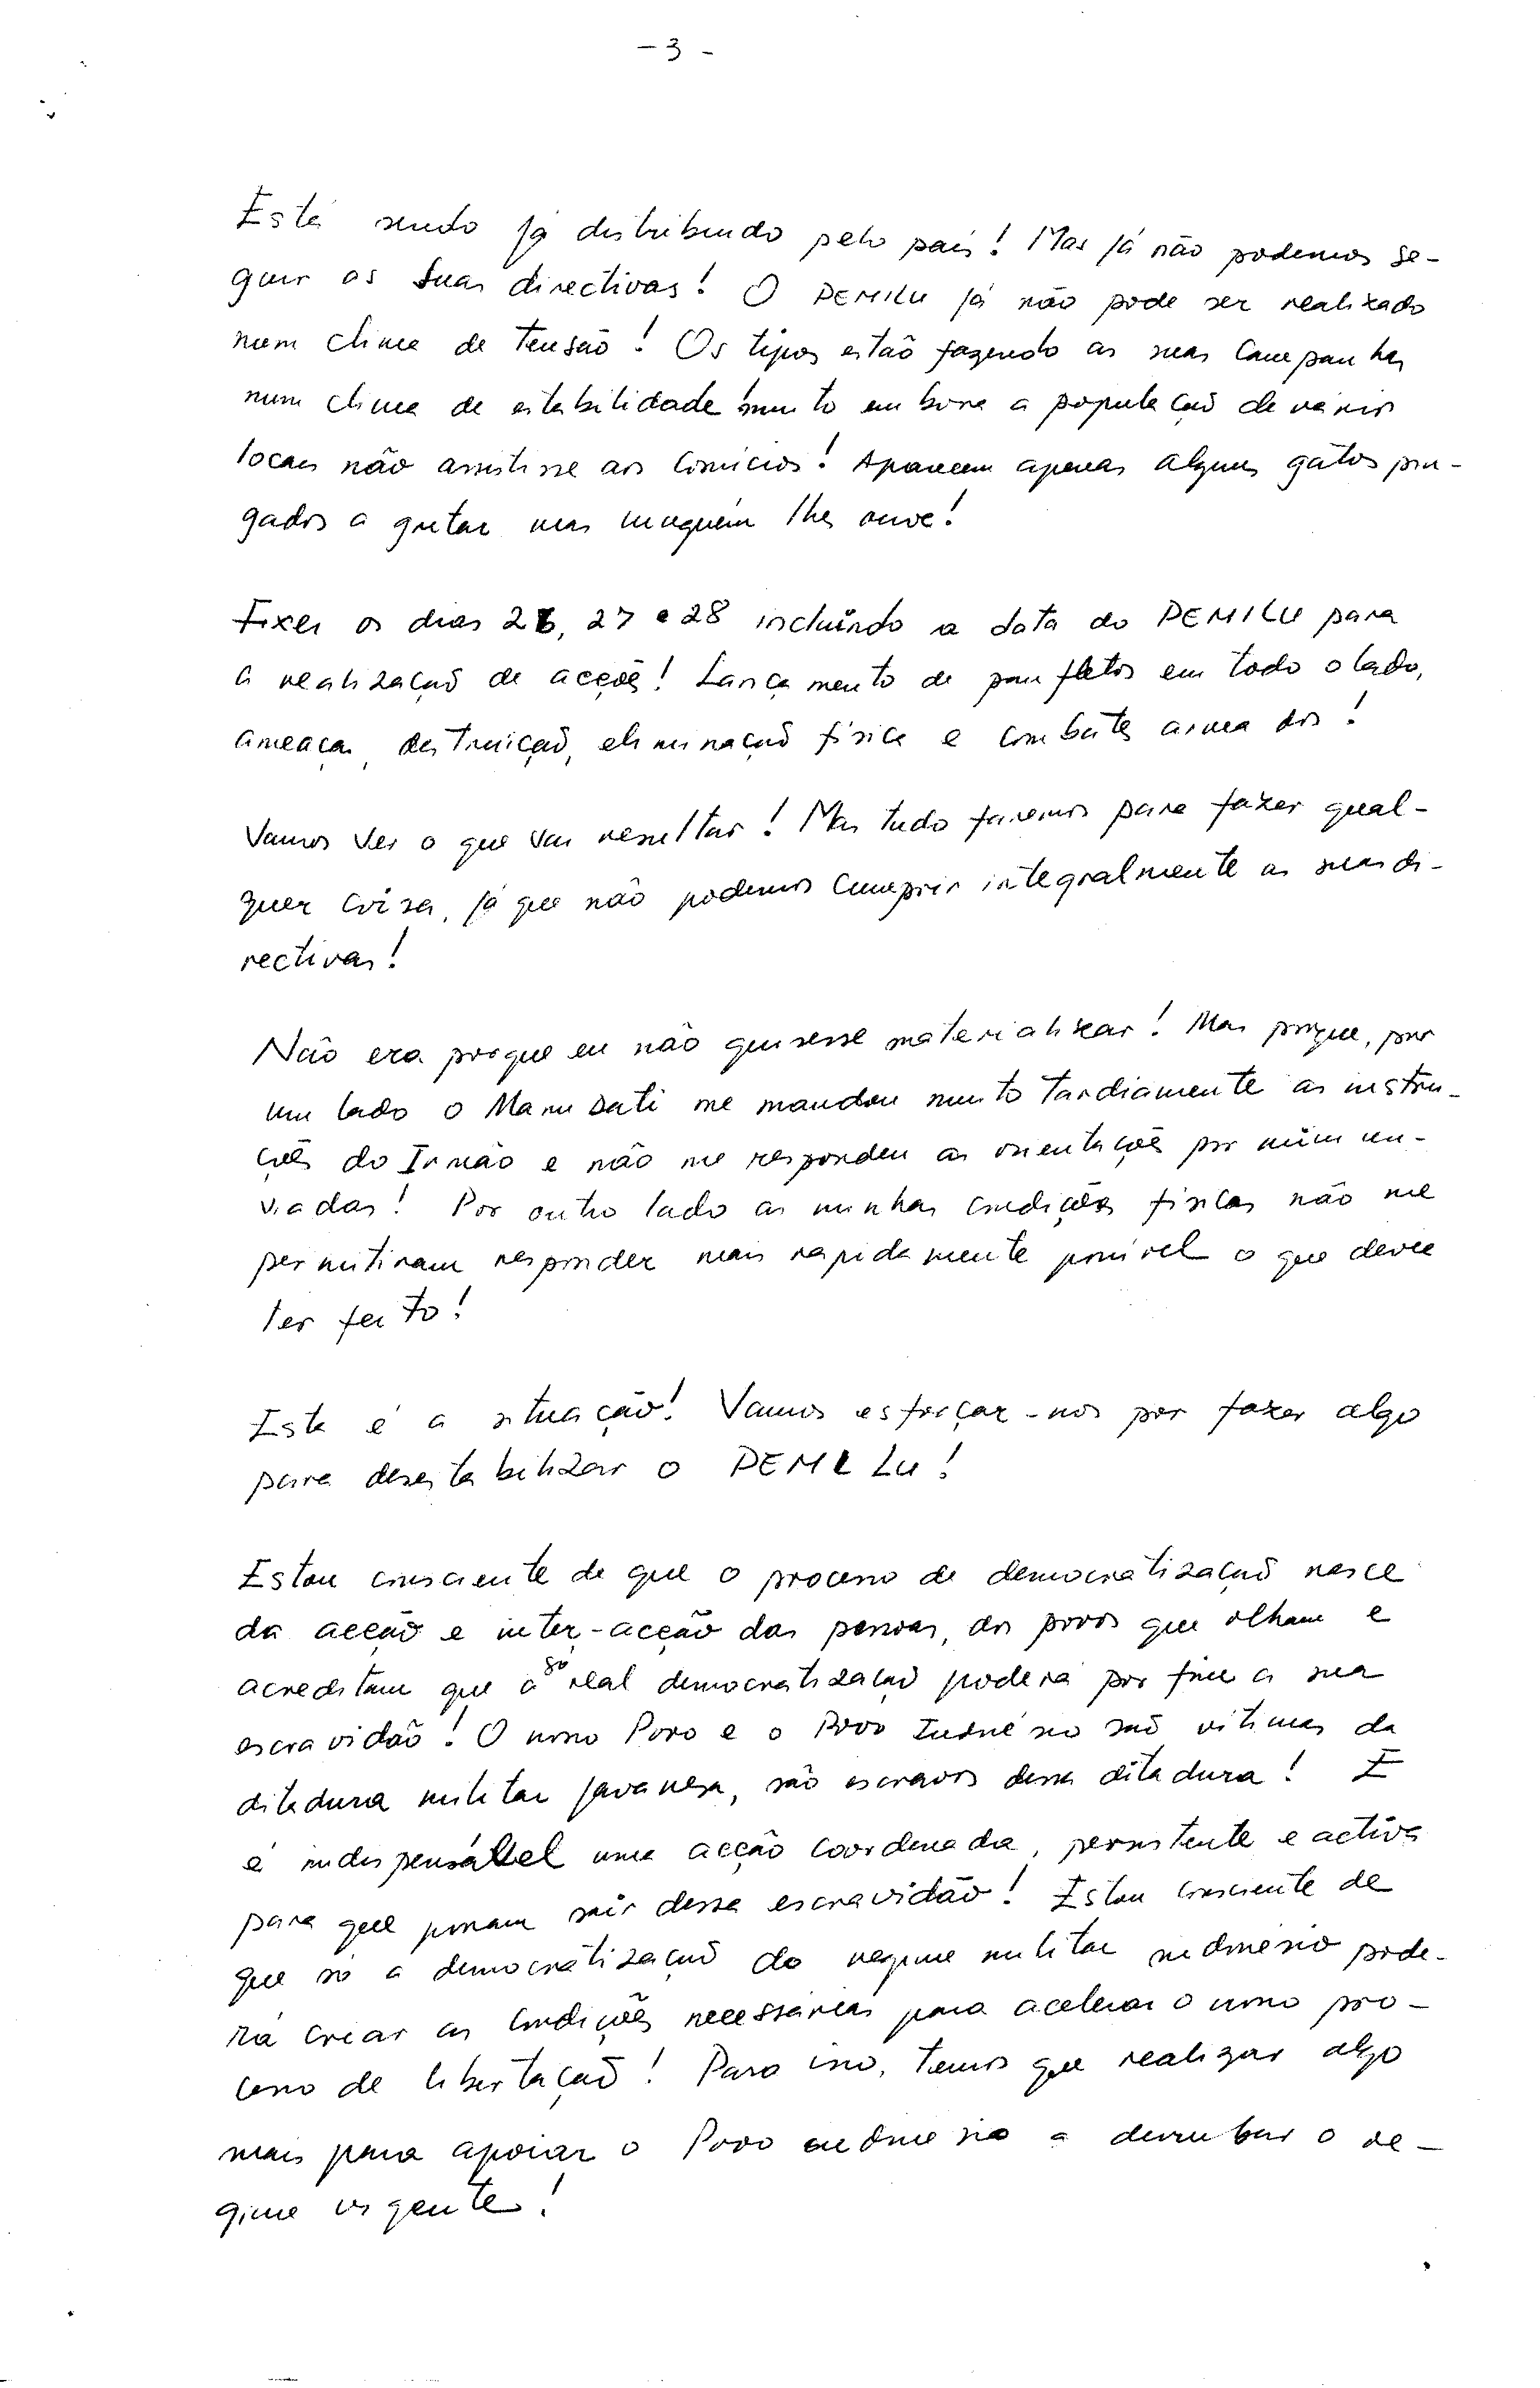 - 3 -
Está sendo já distribuido pelo país! Mas já não podemos se-
guir as suas directivas! O PEMILU já não pode ser realizado
num clima de tensão! Os tipos estão fazendo as suas campanhas
num clima de estabilidade muito embora a população de vários
locais não assistisse aos comícios! Aparecem apenas alguns gatos pin-
gados a gritar mas ninguém lhes ouve!
Fixei os dias 26, 27 e 28 incluindo a data do PEMILU para
a realização de acções! Lançamento de panfletos em todo o lado,
ameaças, destruição, eliminação física e combates armados!
Vamos ver o que vai resultar! Mas tudo faremos para fazer qual-
quer coisa, já que não podemos cumprir integralmente as suas di-
rectivas!
Não era porque eu não quisesse materializar! Mas porque, por
um lado o Manu Dati me mandou muito tardiamente as instru-
ções do Irmão e não me respondeu as orientações por mim en-
viadas! Por outro lado as minhas condições físicas não me
permitiram responder mais rapidamente possível o que devia
ter feito!
Esta é a situação! Vamos esforçar-nos por fazer algo
para desestabilizar o PEMILU!
Estou consciente de que o processo de democratização nasce
da acção e inter-acção das pessoas, dos povos que olham e
acreditam que só a real democratização poderá por fim a sua
escravidão! O nosso Povo e o Povo Indonésio são vítimas da
ditadura militar javanesa, são escravos dessa ditadura! E
é indispensável uma acção coordenada, persistente e activa
para que possam sair dessa escravidão! Estou consciente de
que só a democratização do regime militar indonésio pode-
rá criar as condições necessárias para acelerar o nosso pro-
cesso de libertação! Para isso, temos que realizar algo
mais para apoiar o Povo indonésio a derrubar o re-
gime vigente!